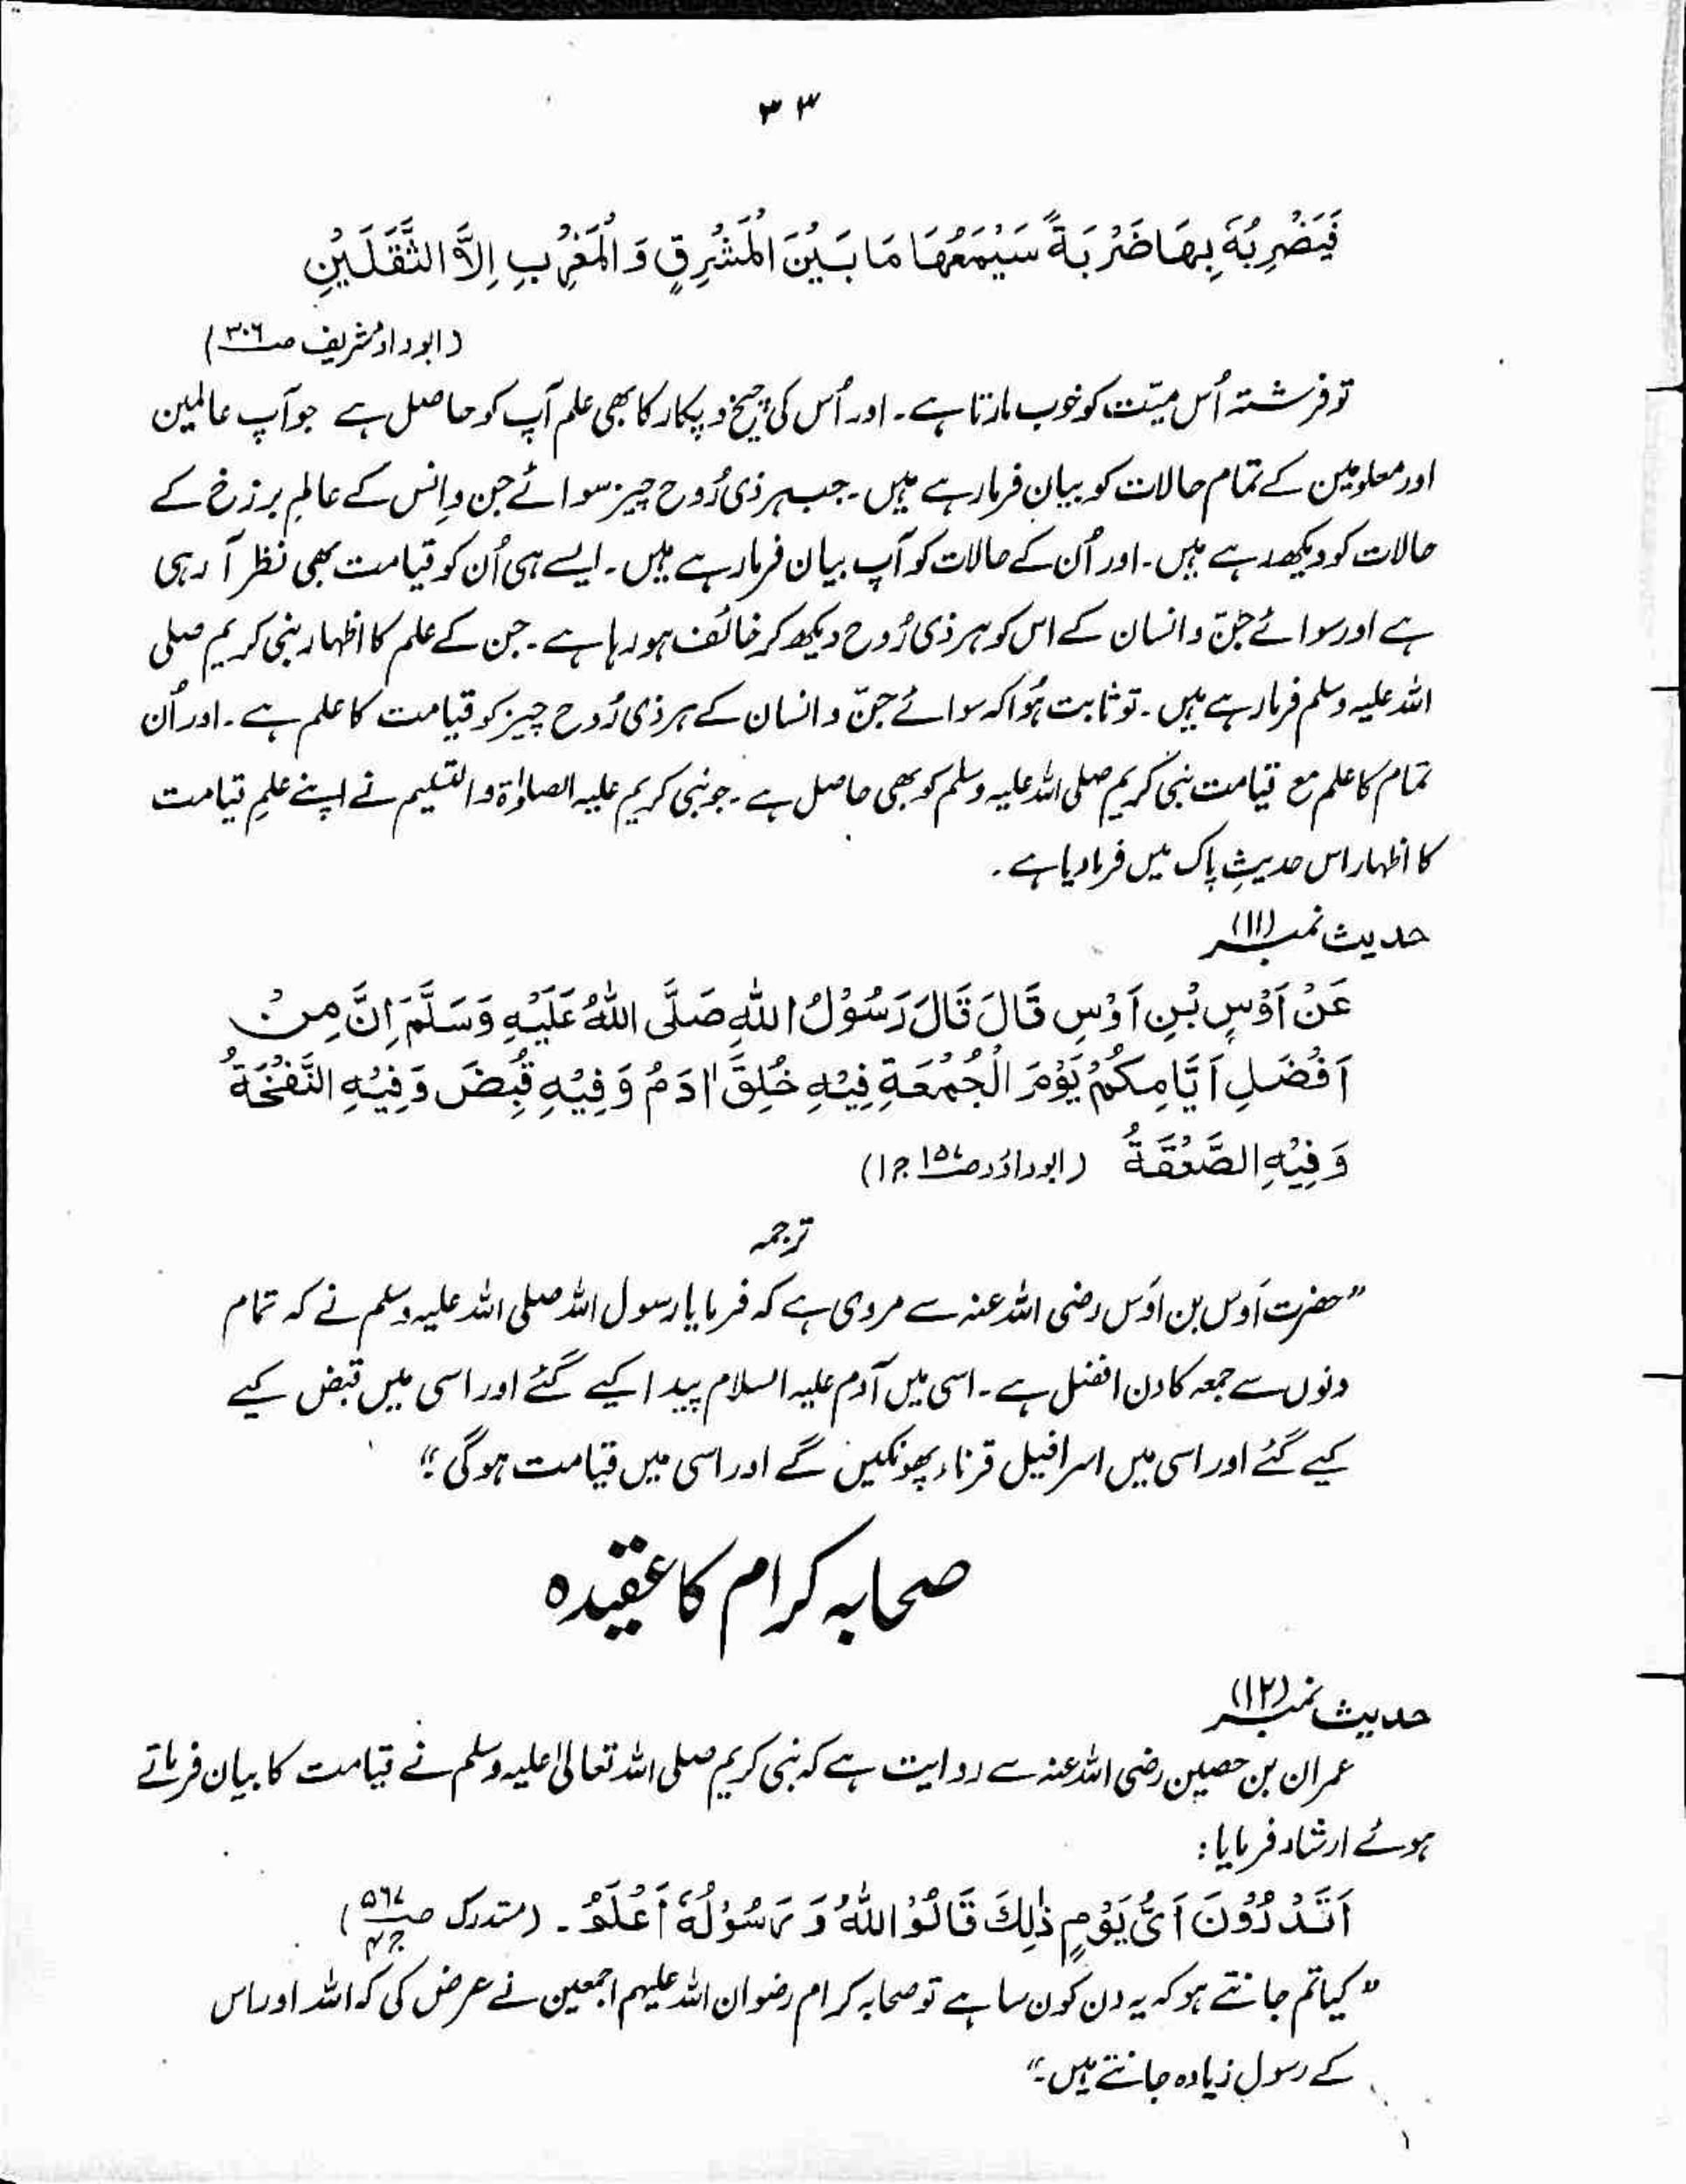 ۳۳
فَيَضْرِبُهٗ بِهَا ضَرْبَةً سَيْمَعُهَا مَا بَيْنَ الْمَشْرِقِ وَ الْمَغْرِبِ اِلَّا الثَّقَلَيْنِ
(ابوداؤد شریف صـ۳۰۶)
تو فرشتہ اُس میّت کو خوب مارتا ہے۔ اور اُس کی چیخ و پکار کا بھی علم آپ کو حاصل ہے جو آپ عالمین
اور معلومین کے تمام حالات کو بیان فرما رہے ہیں۔ جب ہر ذی رُوح چیز سوائے جن و انس کے عالمِ برزخ کے
حالات کو دیکھ رہے ہیں۔ اور اُن کے حالات کو آپ بیان فرما رہے ہیں۔ ایسے ہی اُن کو قیامت بھی نظر آ رہی
ہے اور سوائے جنّ و انسان کے اس کو ہر ذی رُوح دیکھ کر خائف ہو رہا ہے۔ جن کے علم کا اظہار نبی کریم صلی
اللہ علیہ وسلم فرما رہے ہیں۔ تو ثابت ہُوا کہ سوائے جنّ و انسان کے ہر ذی رُوح چیز کو قیامت کا علم ہے۔ اور اُن
تمام کا علم مع قیامت نبی کریم صلی اللہ علیہ وسلم کو بھی حاصل ہے۔ جو نبی کریم علیہ الصلوٰۃ والتسلیم نے اپنے علمِ قیامت
کا اظہار اس حدیثِ پاک میں فرما دیا ہے۔
حدیث نمبر (۱۱)
عَنْ اَوْسٍ بْنِ اَوْسٍ قَالَ قَالَ رَسُوْلُ اللّٰهِ صَلَّى اللّٰهُ عَلَيْهِ وَسَلَّمَ اِنَّ مِنْ
اَفْضَلِ اَيَّامِكُمْ يَوْمَ الْجُمُعَةِ فِيْهِ خُلِقَ اٰدَمُ وَفِيْهِ قُبِضَ وَفِيْهِ النَّفْخَةُ
وَفِيْهِ الصَّعْقَةُ (ابوداؤد صـ۱۵۷ ج۱)
ترجمہ
”حضرت اَوس بن اوَس رضی اللہ عنہ سے مروی ہے کہ فرمایا رسول اللہ صلی اللہ علیہ وسلم نے کہ تمام
دنوں سے جمعہ کا دن افضل ہے۔ اسی میں آدم علیہ السلام پیدا کیے گئے اور اسی میں قبض کیے
کیے گئے اور اسی میں اسرافیل قرناء پھونکیں گے اور اسی میں قیامت ہو گی“
صحابہ کرام کا عقیدہ
حدیث نمبر (۱۲)
عمران بن حصین رضی اللہ عنہ سے روایت ہے کہ نبی کریم صلی اللہ تعالیٰ علیہ وسلم نے قیامت کا بیان فرماتے
ہوئے ارشاد فرمایا:
اَتَدْرُوْنَ اَيُّ يَوْمٍ ذٰلِكَ قَالُوْا اللّٰهُ وَ رَسُوْلُهٗ اَعْلَمُ۔ (مستدرک صـ۵۶۷ ج۴)
”کیا تم جانتے ہو کہ یہ دن کون سا ہے تو صحابہ کرام رضوان اللہ علیہم اجمعین نے عرض کی کہ اللہ اور اس
کے رسول زیادہ جانتے ہیں۔“